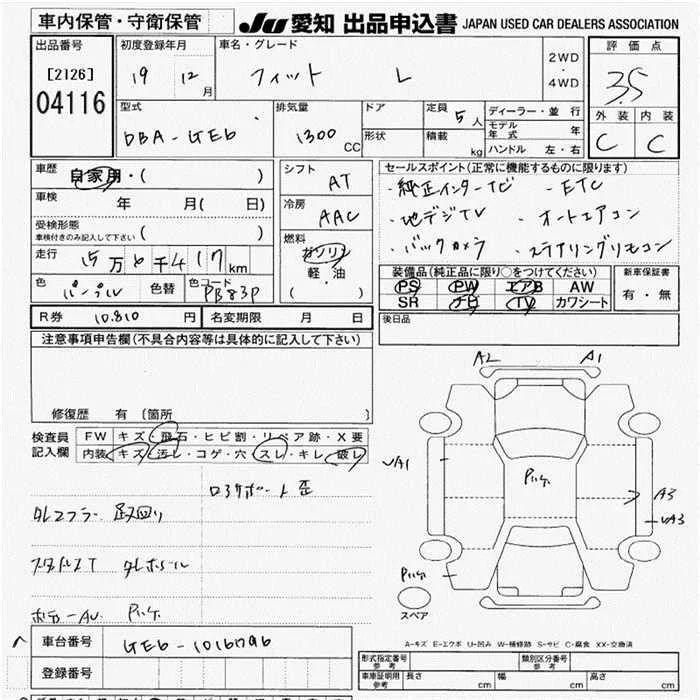 車内保管・守衛保管 JU 愛知 出品申込書 JAPAN USED CAR DEALERS ASSOCIATION
出品番号 初度登録年月 車名・グレード 2WD・4WD 評価点
[2126] 04116 19 12月 フィット L 3.5
型式 排気量 ドア 定員 ディーラー・並行 外装 内装
DBA-GE6 1300 CC 形状 5人 積載 kg モデル年式 年 ハンドル 左・右 C C
車歴 自家用・( ) シフト AT セールスポイント(正常に機能するものに限ります)
車検 年 月( 日) 冷房 AAC ・純正インターナビ ・ETC
受検形態 車検付きのみ記入して下さい ( ) ・地デジTV ・オートエアコン
走行 万 千4 km 燃料 ガソリン 軽・油 ( ) ・バックカメラ ・ステアリングリモコン
色 パープル 色替 色コード PB83P 装備品(純正品に限り○をつけてください) 新車保証書
PS PW エアB AW 有・無
SR ナビ TV カワシート
R券 10,810円 名変期限 月 日 後日品
注意事項申告欄(不具合内容等は具体的に記入して下さい)
修復歴 有 〔箇所 〕
検査員記入欄 FW キズ・飛石・ヒビ割・リペア跡・X要
内装 キズ・汚レ・コゲ・穴・スレ・キレ・破レ
A2 A1
UA1 A3
UA3
スペア
A-キズ E-エクボ U-凹み W-補修跡 S-サビ C-腐食 XX-交換済
車台番号
登録番号
形式指定番号 参考 類別区分番号 参考
車庫証明用 参考 長さ cm 幅 cm 高さ cm